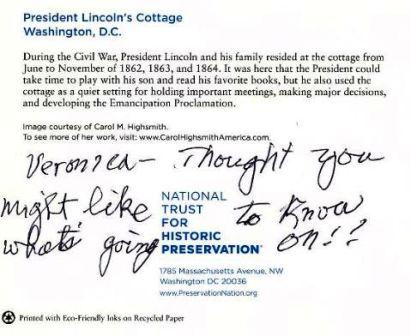 President Lincoln's Cottage
Washington, D.C.
During the Civil War, President Lincoln and his family resided at the cottage from
June to November of 1862, 1863, and 1864. It was here that the President could
take time to play with his son and read his favorite books, but he also used the
cottage as a quiet setting for holding important meetings, making major decisions,
and developing the Emancipation Proclamation.
Image courtesy of Carol M. Highsmith.
To see more of her work, visit: www.CarolHighsmithAmerica.com.
Veronica— Thought you
might like to know
what's going on!!
NATIONAL
TRUST
FOR
HISTORIC
PRESERVATION®
1785 Massachusetts Avenue, NW
Washington DC 20036
www.PreservationNation.org
Printed with Eco-Friendly Inks on Recycled Paper